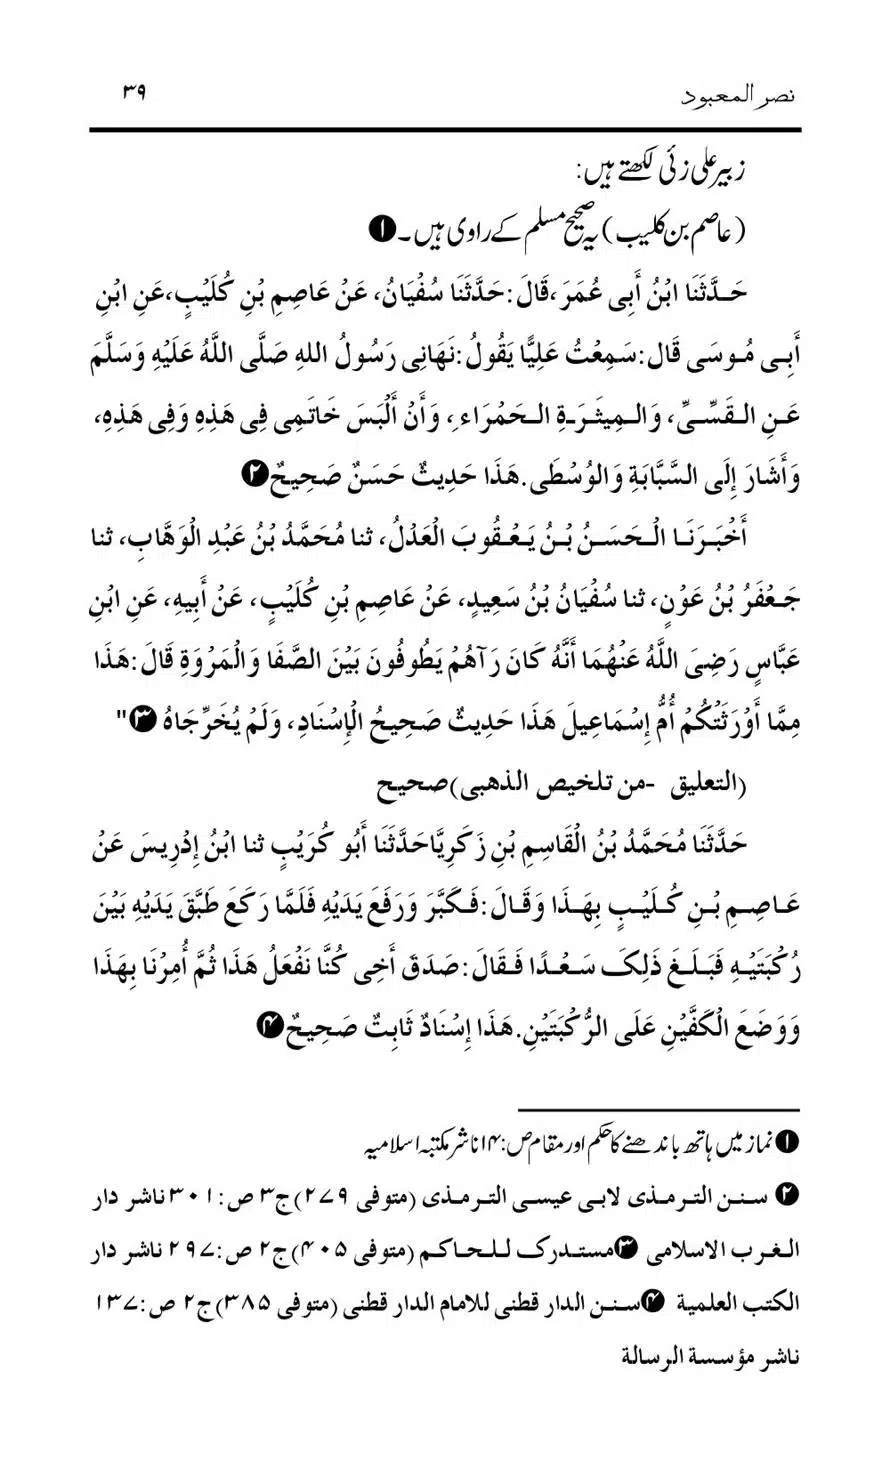 نصر المعبود ۳۹
زبیر علی زئی لکھتے ہیں:
(عاصم بن کلیب) یہ صحیح مسلم کے راوی ہیں۔❶
حَدَّثَنَا ابْنُ أَبِی عُمَرَ،قَالَ:حَدَّثَنَا سُفْیَانُ، عَنْ عَاصِمِ بْنِ کُلَیْبٍ،عَنِ ابْنِ
أَبِی مُوسَی قَالَ:سَمِعْتُ عَلِیًّا یَقُولُ:نَهَانِی رَسُولُ اللهِ صَلَّی اللَّهُ عَلَیْهِ وَسَلَّمَ
عَنِ القَسِّیِّ، وَالمِیثَرَةِ الحَمْرَاءِ، وَأَنْ أَلْبَسَ خَاتَمِی فِی هَذِهِ وَفِی هَذِهِ،
وَأَشَارَ إِلَی السَّبَّابَةِ وَالوُسْطَی.هَذَا حَدِیثٌ حَسَنٌ صَحِیحٌ❷
أَخْبَرَنَا الْحَسَنُ بْنُ یَعْقُوبَ الْعَدْلُ، ثنا مُحَمَّدُ بْنُ عَبْدِ الْوَهَّابِ، ثنا
جَعْفَرُ بْنُ عَوْنٍ، ثنا سُفْیَانُ بْنُ سَعِیدٍ، عَنْ عَاصِمِ بْنِ کُلَیْبٍ، عَنْ أَبِیهِ، عَنِ ابْنِ
عَبَّاسٍ رَضِیَ اللَّهُ عَنْهُمَا أَنَّهُ کَانَ رَآهُمْ یَطُوفُونَ بَیْنَ الصَّفَا وَالْمَرْوَةِ قَالَ:هَذَا
مِمَّا أَوْرَثَتْکُمْ أُمُّ إِسْمَاعِیلَ هَذَا حَدِیثٌ صَحِیحُ الْإِسْنَادِ، وَلَمْ یُخَرِّجَاهُ ❸"
(التعلیق -من تلخیص الذهبی)صحیح
حَدَّثَنَا مُحَمَّدُ بْنُ الْقَاسِمِ بْنِ زَکَرِیَّاحَدَّثَنَا أَبُو کُرَیْبٍ ثنا ابْنُ إِدْرِیسَ عَنْ
عَاصِمِ بْنِ کُلَیْبٍ بِهَذَا وَقَالَ:فَکَبَّرَ وَرَفَعَ یَدَیْهِ فَلَمَّا رَکَعَ طَبَّقَ یَدَیْهِ بَیْنَ
رُکْبَتَیْهِ فَبَلَغَ ذَلِکَ سَعْدًا فَقَالَ:صَدَقَ أَخِی کُنَّا نَفْعَلُ هَذَا ثُمَّ أُمِرْنَا بِهَذَا
وَوَضَعَ الْکَفَّیْنِ عَلَی الرُّکْبَتَیْنِ.هَذَا إِسْنَادٌ ثَابِتٌ صَحِیحٌ❹
❶نماز میں ہاتھ باندھنے کا حکم اور مقام ص:۱۴ ناشر مکتبہ اسلامیہ
❷ سنن الترمذی لابی عیسی الترمذی (متوفی ۲۷۹)ج۳ ص:۳۰۱ ناشر دار
الغرب الاسلامی ❸مستدرک للحاکم (متوفی ۴۰۵)ج۲ ص:۲۹۷ ناشر دار
الکتب العلمیة ❹سنن الدار قطنی للامام الدار قطنی (متوفی ۳۸۵)ج۲ ص:۱۳۷
ناشر مؤسسة الرسالة